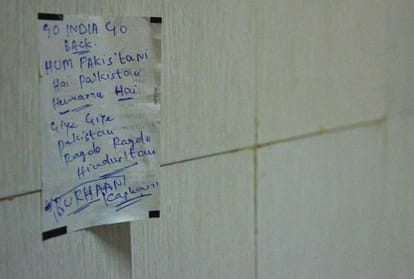 GO INDIA GO
BACK.
HUM PAKIStANI
Hai Paikistan
Humara Hai.
Giye Giye
Pakistan
Ragdo Ragdo
Hindustan
BURHAAN
Kashmir